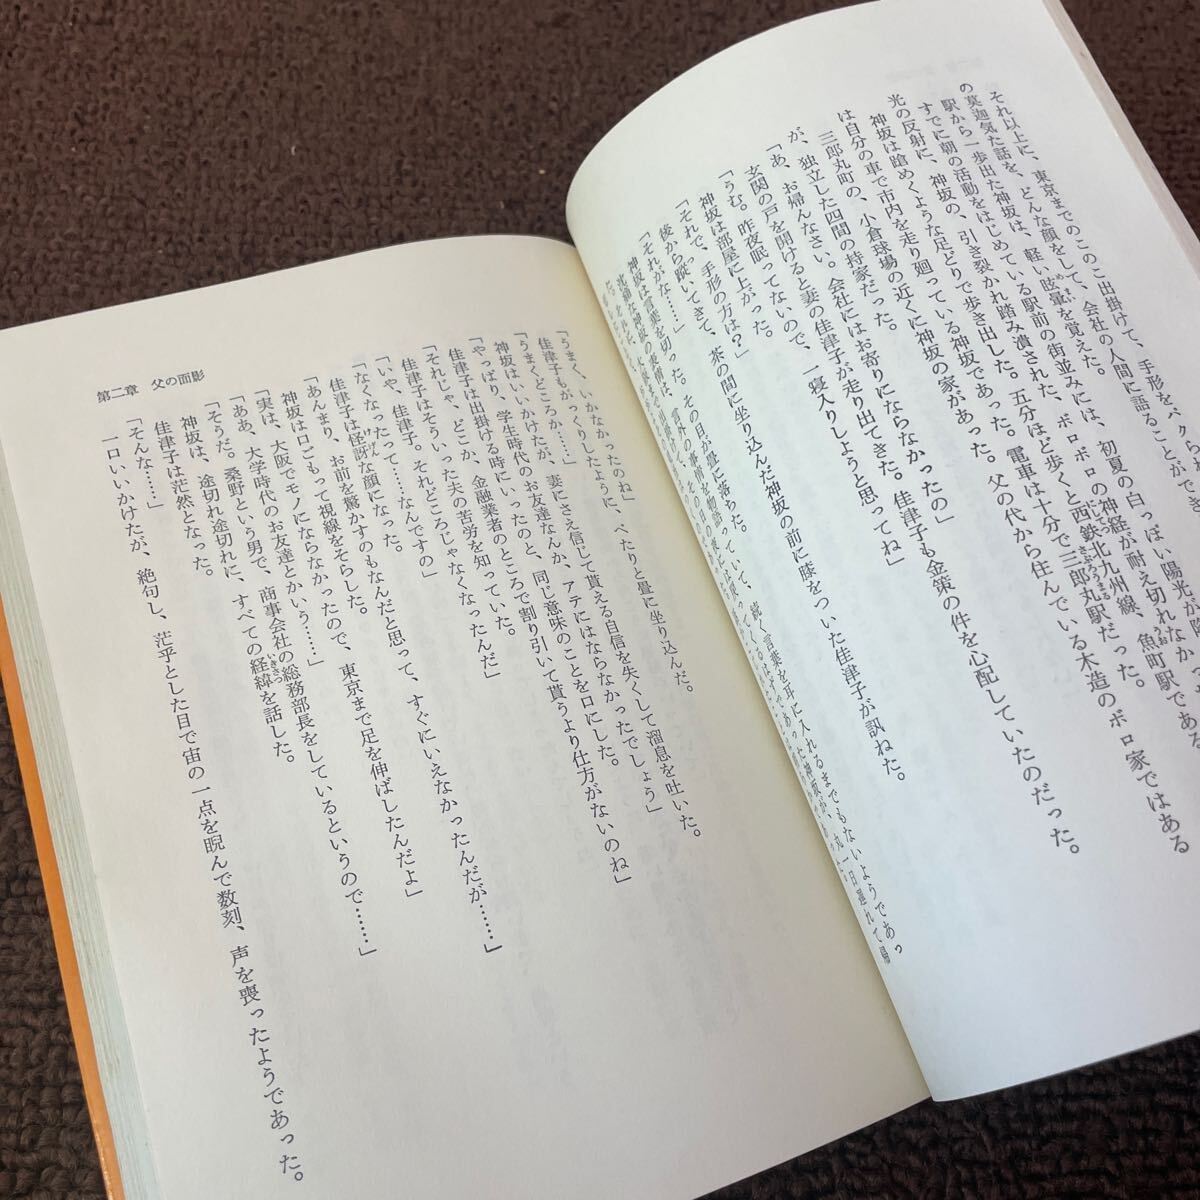 それ以上に、東京までのこのこ出掛けて、手形をパクら
の莫迦気た話を、どんな顔をして、会社の人間に語ることができ
駅から一歩出た神坂は、軽い眩暈を覚えた。
すでに朝の活動をはじめている駅前の街並みには、初夏の白っぽい陽光が降
光の反射に、神坂の、引き裂かれ踏み潰された、ボロボロの神経が耐え切れなか
神坂は蹌めくような足どりで歩き出した。五分ほど歩くと西鉄北九州線、魚町駅である
は自分の車で市内を走り廻っている神坂であった。電車は十分で三郎丸駅だった。
三郎丸町の、小倉球場の近くに神坂の家があった。父の代から住んでいる木造のボロ家ではある
が、独立した四間の持家だった。
「あ、お帰んなさい。会社にはお寄りにならなかったの」
玄関の戸を開けると妻の佳津子が走り出てきた。佳津子も金策の件を心配していたのだった。
「うむ。昨夜眠ってないので、一寝入りしようと思ってね」
神坂は部屋に上がった。
「それで、手形の方は？」
後から蹤いてきて、茶の間に坐り込んだ神坂の前に膝をついた佳津子が訊ねた。
「それがな……」
神坂は言葉を切った。その目が畳に落ちた。
「うまく、いかなかったのね」
佳津子もがっくりしたように、ぺたりと畳に坐り込んだ。
「うまくどころか……」
神坂はいいかけたが、妻にさえ信じて貰える自信を失くして溜息を吐いた。
「やっぱり、学生時代のお友達なんか、アテにはならなかったでしょう」
佳津子は出掛ける時にいったのと、同じ意味のことを口にした。
「それじゃ、どこか、金融業者のところで割り引いて貰うより仕方がないのね」
佳津子はそういった夫の苦労を知っていた。
「いや、佳津子。それどころじゃなくなったんだ」
「なくなったって……なんですの」
佳津子は怪訝な顔になった。
「あんまり、お前を驚かすのもなんだと思って、すぐにいえなかったんだが……」
神坂は口ごもって視線をそらした。
「実は、大阪でモノにならなかったので、東京まで足を伸ばしたんだよ」
「ああ、大学時代のお友達とかいう……」
「そうだ。桑野という男で、商事会社の総務部長をしているというので……」
神坂は、途切れ途切れに、すべての経緯を話した。
佳津子は茫然となった。
「そんな……」
一口いいかけたが、絶句し、茫乎とした目で宙の一点を睨んで数刻、声を喪ったようであった。
第二章　父の面影